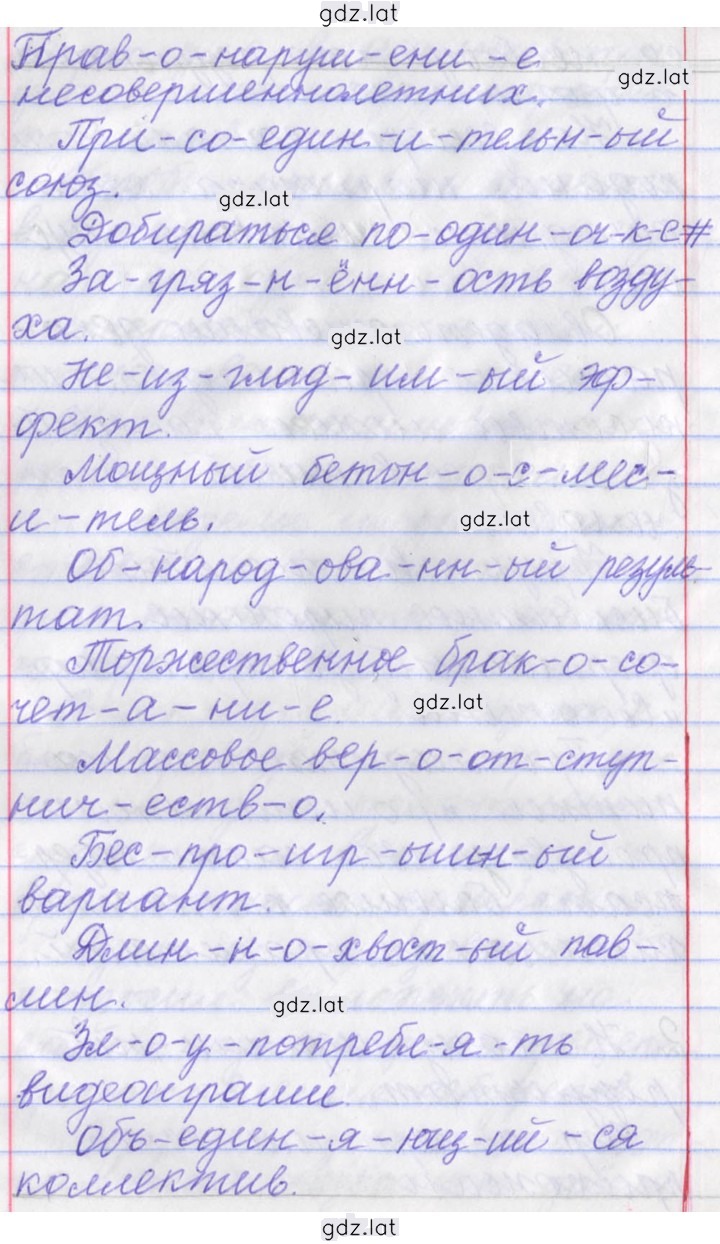 gdz.lat
Прав-о-наруш-ени-е
gdz.lat
несовершеннолетних.
При-со-един-и-тельн-ый
союз.
gdz.lat
Добираться по-один-оч-к-е#
За-гряз-н-ённ-ость возду-
ха.
gdz.lat
Не-из-глад-им-ый эф-
фект.
Мощный бетон-о-с-мес-
и-тель.
gdz.lat
Об-народ-ова-нн-ый резуль-
тат.
Торжественное брак-о-со-
чет-а-ни-е.
gdz.lat
Массовое вер-о-от-ступ-
нич-еств-о.
Бес-про-игр-ышн-ый
вариант.
Длин-н-о-хвост-ый пав-
лин.
gdz.lat
Зл-о-у-потребл-я-ть
видеоиграми.
Объ-един-я-ющ-ий-ся
коллектив.
gdz.lat